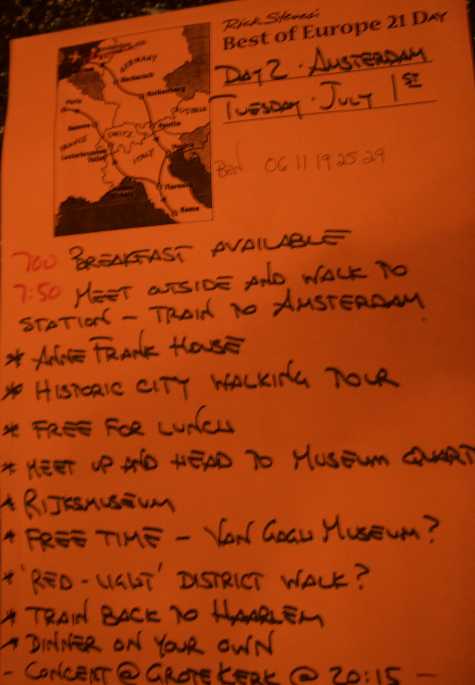 Rick Steves'
Best of Europe 21 Day
DAY 2 · AMSTERDAM
TUESDAY · JULY 1ST
Ben 06 11 19 25 29
GERMANY
Bacharach
Rothenburg
Paris
AUSTRIA
FRANCE
SWITZ
ITALY
Florence
Rome
700 BREAKFAST AVAILABLE
7:50 MEET OUTSIDE AND WALK TO
STATION - TRAIN TO AMSTERDAM
* ANNE FRANK HOUSE
* HISTORIC CITY WALKING TOUR
* FREE FOR LUNCH
* MEET UP AND HEAD TO MUSEUM QUART
* RIJKSMUSEUM
* FREE TIME - VAN GOGH MUSEUM?
* 'RED-LIGHT' DISTRICT WALK?
* TRAIN BACK TO HAARLEM
* DINNER ON YOUR OWN
- CONCERT @ GROTE KERK @ 20:15 -